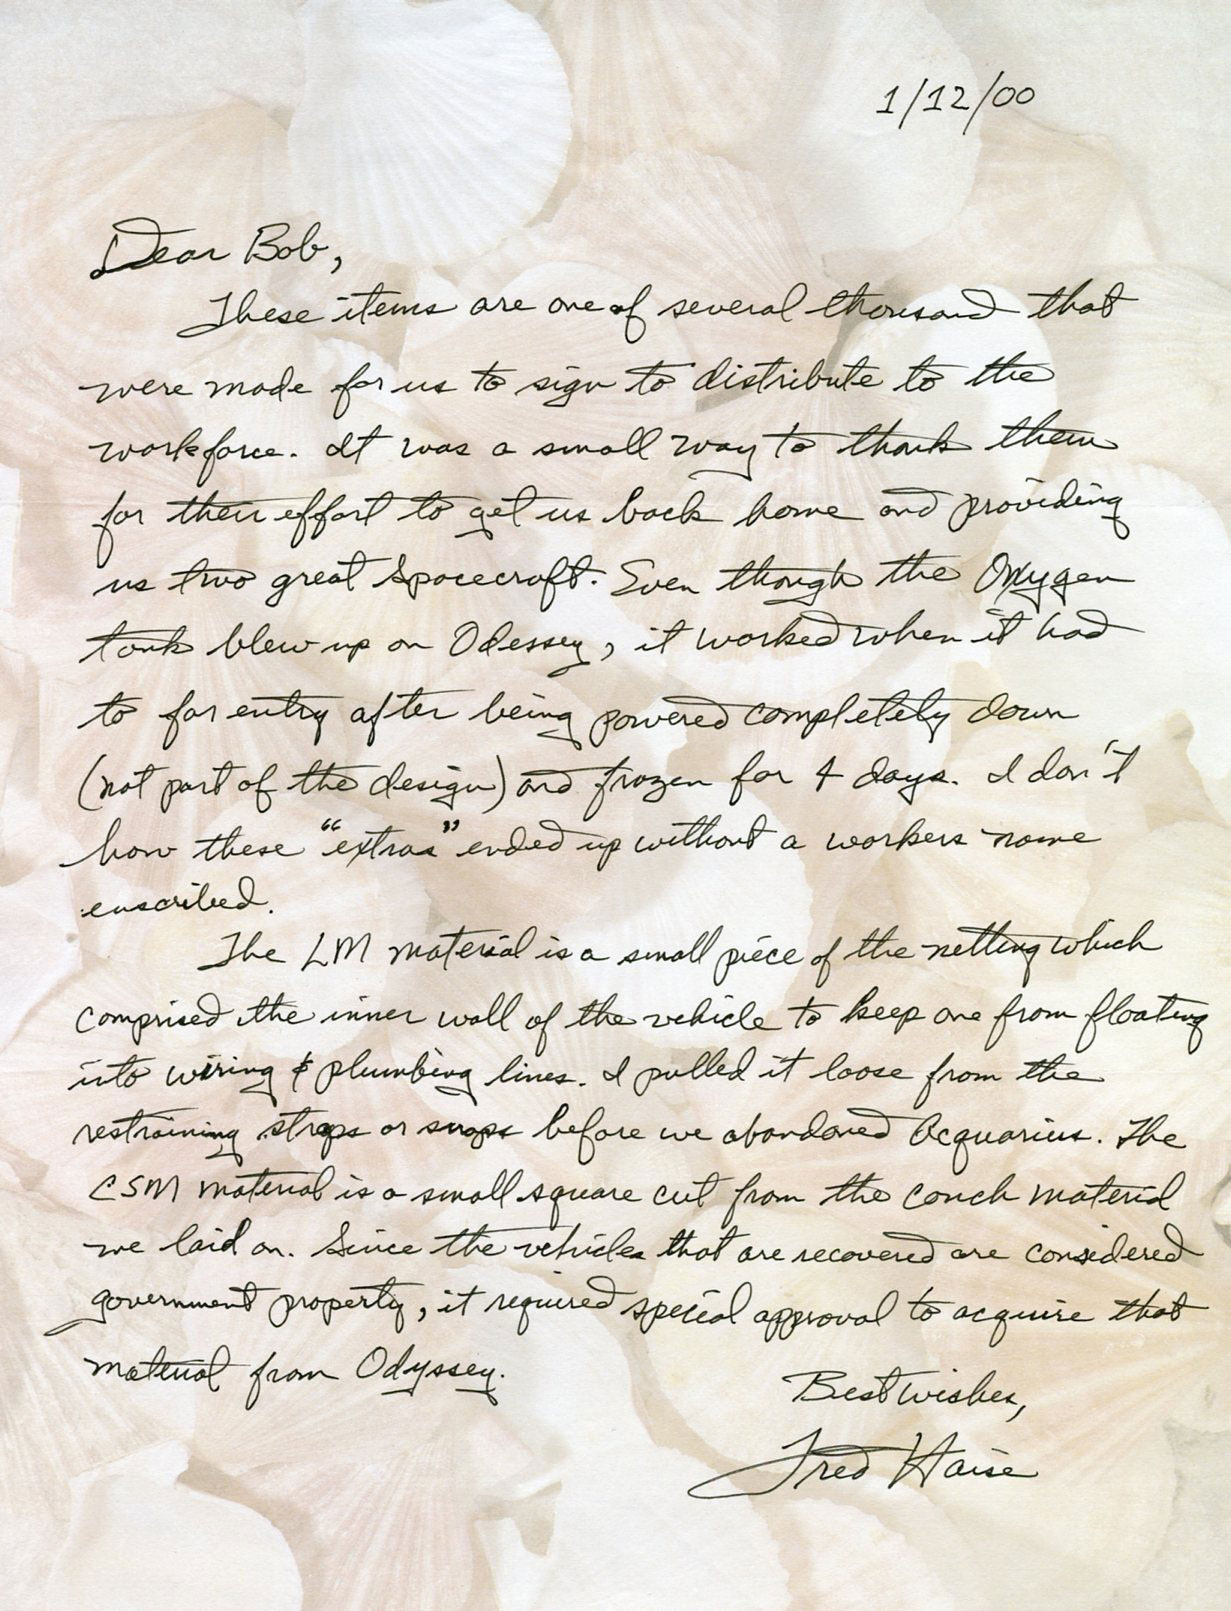 1/12/00
Dear Bob,
These items are one of several thousand that
were made for us to sign to distribute to the
workforce. It was a small way to thank them
for their effort to get us back home and providing
us two great spacecraft. Even though the Oxygen
tank blew up on Odessey, it worked when it had
to for entry after being powered completely down
(not part of the design) and frozen for 4 days. I don't
how these "extras" ended up without a workers name
enscribed.
The LM material is a small piece of the netting which
comprised the inner wall of the vehicle to keep one from floating
into wiring & plumbing lines. I pulled it loose from the
restraining straps or snaps before we abandoned Acquarius. The
CSM material is a small square cut from the couch material
we laid on. Since the vehicles that are recovered are considered
government property, it required special approval to acquire that
material from Odyssey.
Best wishes,
Fred Haise